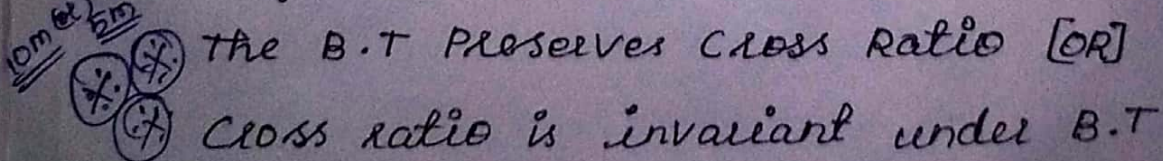 10m (or) 5m
The B.T Preserves Cross Ratio [OR]
Cross ratio is invariant under B.T